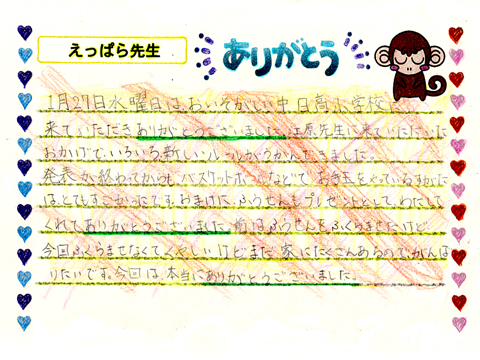 えっぱら先生
ありがとう
1月27日水曜日は、おいそがしい中 日高小学校に
来ていただきありがとうございました。江原先生に来ていただいた
おかげで、いろいろ新しいルールがうかんできました。
発表が終わってからも、バスケットボールなどで、お手玉をやっているすがた
はとてもすごかったです。おまけに、ふうせんをプレゼントとして、わたして
くれてありがとうございました。前はふうせんをふくらませたけど、
今回ふくらませなくてくやしいけどまだ家にたくさんあるので、がんば
りたいです。今回は、本当にありがとうございました。